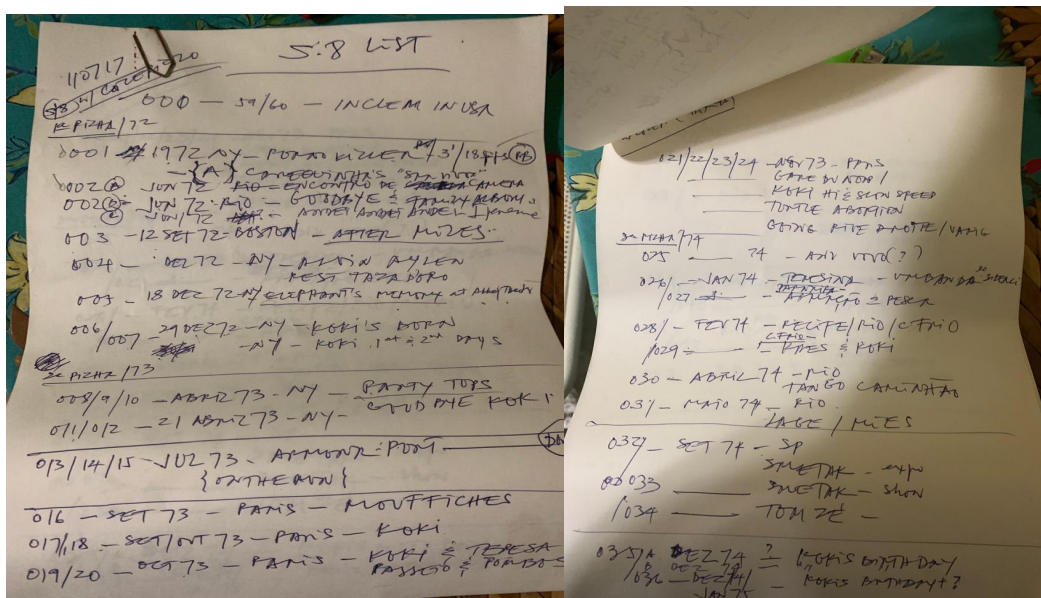 S:8 LIST
110717
000 — 59/60 — INCLEM IN USA
/72
0001 1972 NY — PORNO KILLER 3'/18 FPS
{A}
002 A JUN 72 RIO = ENCONTRO DE CAMERA
002 B JUN 72 - RIO — GOODBYE & FAMILY ALBUM
JUN/72 — ANDEI ANDEI ANDEI
003 — 12 SET 72 - BOSTON — AFTER MILES
004 — DEZ 72 — NY — ALVIN AYLEN
REST TAZA D'ORO
005 — 18 DEZ 72 NY / ELEPHANT'S MEMORY at
006 / 29 DEZ 72 — NY — KOKI'S BORN
/007 — NY — KOKI 1st & 2nd DAYS
/73
008/9/10 — ABRIL 73 — NY — PARTY TOPS
011/012 — 21 ABRIL 73 — NY — GOODBYE KOKI
013/14/15 — JUL 73 — ARMONA: PORT
{ON THE RUN}
016 — SET 73 — PARIS — MOUFFICHES
017/18 — SET/OUT 73 — PARIS — KOKI
019/20 — OCT 73 — PARIS — KOKI & TERESA
PASSEIO & POMBOS
021/22/23/24 — NOV 73 — PARIS
GARE DU NORD /
KOKI HI & SLOW SPEED
TURTLE ABORTION
GOING RITE
/74
025 — 74 — ANO NOVO (?)
026/ — JAN 74 — TERESINA — UMBANDA
/027 — ARMAÇÃO & PESCA
028/ — FEV 74 — RECIFE/RIO/C.FRIO
C.FRIO
/029 — KAES & KOKI
030 — ABRIL 74 — RIO
TANGO CAMINHÃO
031 — MAIO 74 — RIO
LAGE / MILES
032/ — SET 74 — SP
SMETAK — expo
033 — SMETAK — show
/034 — TOM ZÉ —
035/A DEZ 74 ? = KOKIS BIRTHDAY
B DEZ 74
036 — DEZ 74/ — KOKIS BIRTHDAY + ?
JAN 75